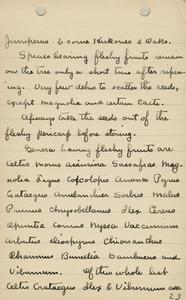 Juniperus & some Hickories & Oaks.
Species bearing fleshy fruits remain
on the tree only a short time after ripen-
ing. Very few delve to scatter the seeds,
except Magnolia and certain Cacti.
Always take the seeds out of the
fleshy pericarp before storing.
Genera having fleshy fruits are
Celtis Morus Asimina Sassafras Mag-
nolia Ficus Coccolobis Annona Pyrus
Crataegus Amelanchier Sorbus Malus
Prunus Chrysobalanus Ilex Cereus
Opuntia Cornus Nyssa Vaccinium
Arbutus Diospyros Chionanthus
Rhamnus Bumelia Sambucus and
Viburnum. Of this whole list
Celtis Crataegus Ilex & Viburnum are
23